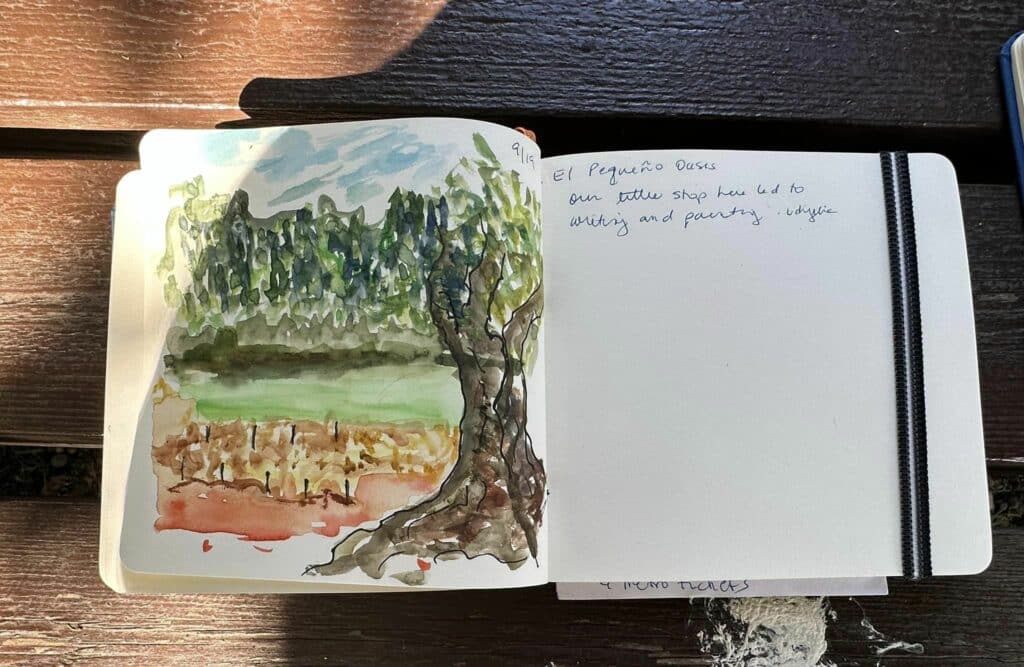 9/19
El Pequeño Oasis
our little stop here led to
writing and painting. idyllic
metro tickets